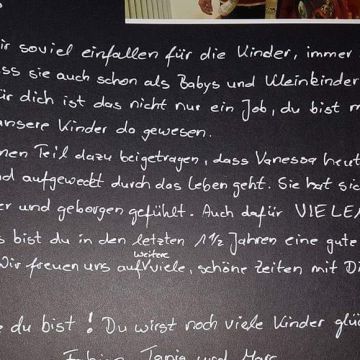 ir soviel einfallen für die Kinder, immer
ss sie auch schon als Babys und Kleinkinder
ür dich ist das nicht nur ein Job, du bist m
unsere Kinder da gewesen.
nen Teil dazu beigetragen, dass Vanessa heut
nd aufgeweckt durch das Leben geht. Sie hat sic
er und geborgen gefühlt. Auch dafür VIELEN
s bist du in den letzten 1½ Jahren eine gute
weitere
Wir freuen uns auf viele, schöne Zeiten mit Di
e du bist! Du wirst noch viele Kinder glüc
Tanja und Marc